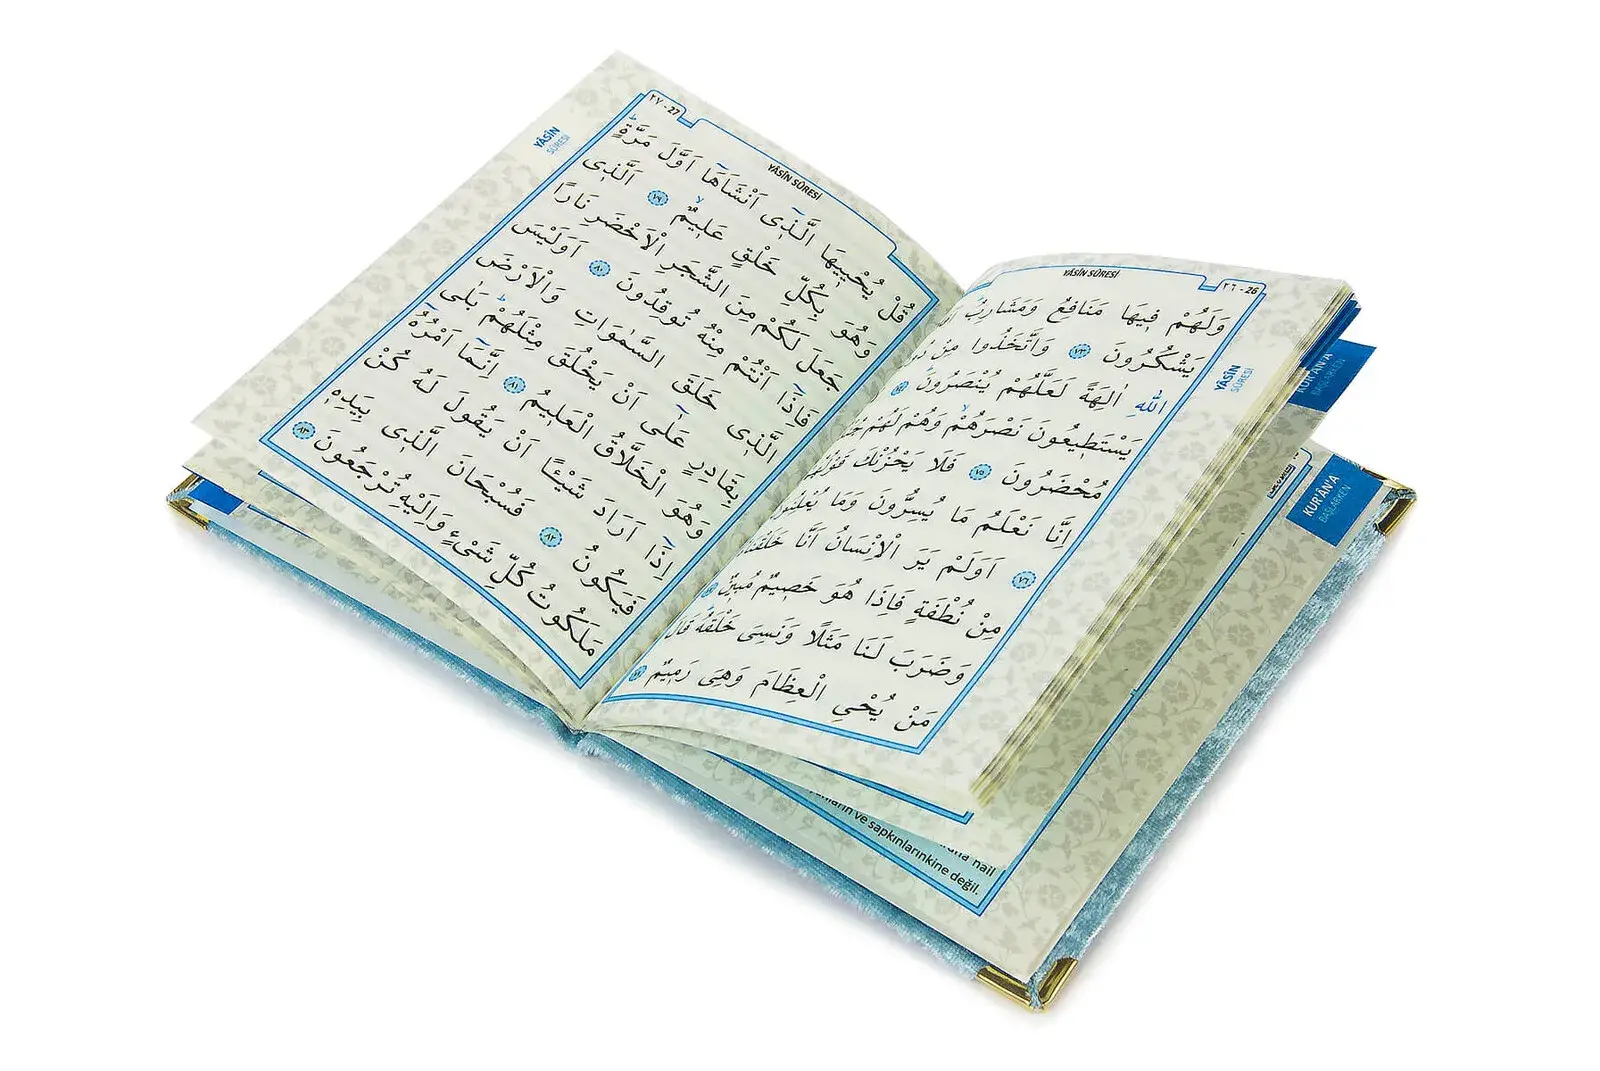 YÂSÎN SÛRESİ
٢٦ - 26
وَلَهُمْ فٖيهَا مَنَافِعُ وَمَشَارِبُ
يَشْكُرُونَ ٧٣ وَاتَّخَذُوا مِنْ
اللّٰهِ اٰلِهَةً لَعَلَّهُمْ يُنْصَرُونَ ٧٤
يَسْتَطٖيعُونَ نَصْرَهُمْ وَهُمْ لَهُمْ
مُحْضَرُونَ ٧٥ فَلَا يَحْزُنْكَ
اِنَّا نَعْلَمُ مَا يُسِرُّونَ وَمَا يُعْلِنُونَ
٧٦ اَوَلَمْ يَرَ الْاِنْسَانُ اَنَّا
مِنْ نُطْفَةٍ فَاِذَا هُوَ خَصٖيمٌ مُبٖينٌ
وَضَرَبَ لَنَا مَثَلًا وَنَسِىَ خَلْقَهُ قَالَ
مَنْ يُحْيِى الْعِظَامَ وَهِىَ رَمٖيمٌ ٧٨
YÂSÎN
SÛRESİ
٢٧ - 27
YÂSÎN SÛRESİ
قُلْ يُحْيٖيهَا الَّذٖى اَنْشَاَهَا اَوَّلَ مَرَّةٍ
وَهُوَ بِكُلِّ خَلْقٍ عَلٖيمٌ ٧٩ اَلَّذٖى
جَعَلَ لَكُمْ مِنَ الشَّجَرِ الْاَخْضَرِ نَارًا
فَاِذَا اَنْتُمْ مِنْهُ تُوقِدُونَ ٨٠ اَوَلَيْسَ
الَّذٖى خَلَقَ السَّمٰوَاتِ وَالْاَرْضَ
بِقَادِرٍ عَلٰٓى اَنْ يَخْلُقَ مِثْلَهُمْ بَلٰى
وَهُوَ الْخَلَّاقُ الْعَلٖيمُ ٨١ اِنَّمَٓا اَمْرُهُٓ
اِذَٓا اَرَادَ شَيْـًٔا اَنْ يَقُولَ لَهُ كُنْ
فَيَكُونُ ٨٢ فَسُبْحَانَ الَّذٖى بِيَدِهٖ
مَلَكُوتُ كُلِّ شَىْءٍ وَاِلَيْهِ تُرْجَعُونَ ٨٣
YÂSÎN
SÛRESİ
KUR'ÂN'A
BAŞLARKEN
KUR'ÂN'A
BAŞLARKEN
nail
ve sapkınlarınkine değil.